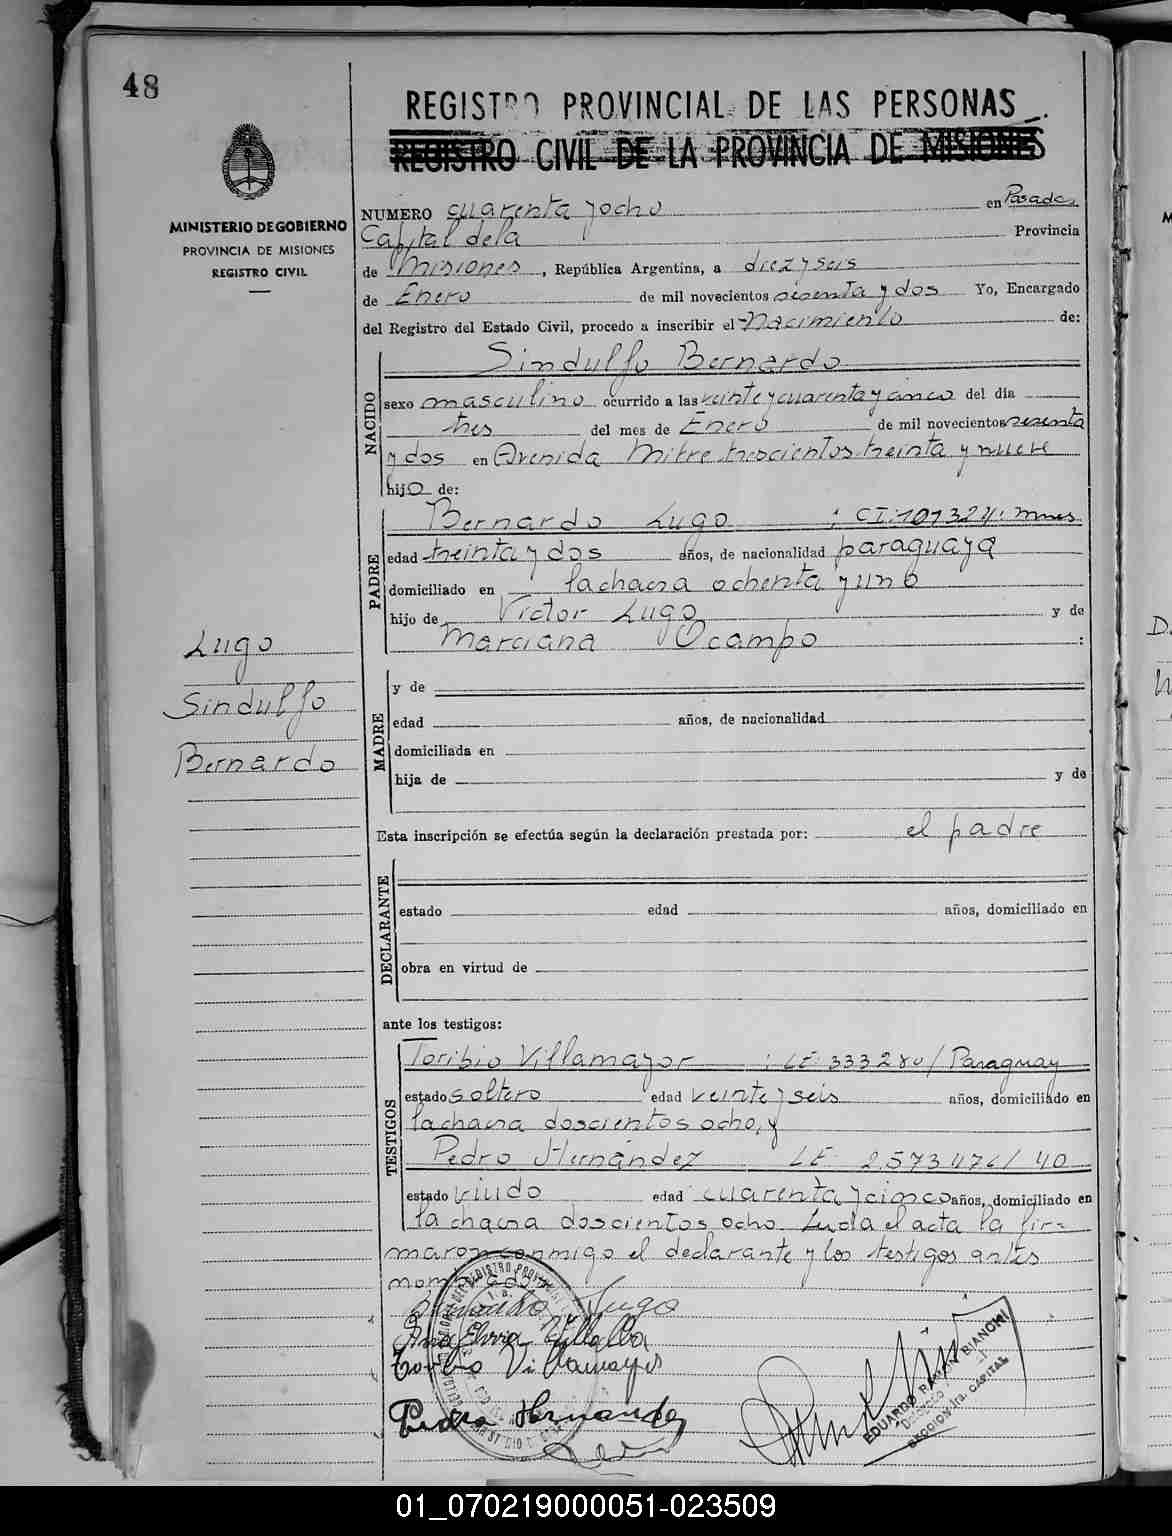 48
REGISTRO PROVINCIAL DE LAS PERSONAS
REGISTRO CIVIL DE LA PROVINCIA DE MISIONES
MINISTERIO DE GOBIERNO
PROVINCIA DE MISIONES
REGISTRO CIVIL
NUMERO cuarenta y ocho en Posadas
Capital de la Provincia
de Misiones, República Argentina, a diez y seis
de Enero de mil novecientos sesenta y dos Yo, Encargado
del Registro del Estado Civil, procedo a inscribir el Nacimiento de:
NACIDO
Sindulfo Bernardo
sexo masculino ocurrido a las veinte y cuarenta y cinco del día
tres del mes de Enero de mil novecientos sesenta
y dos en Avenida Mitre trescientos treinta y nueve
hijo de:
PADRE
Bernardo Lugo : CI: 101324: mnes
edad treinta y dos años, de nacionalidad paraguaya
domiciliado en la chacra ochenta y uno
hijo de Victor Lugo y de
Marciana Ocampo :
Lugo
Sindulfo
Bernardo
MADRE
y de
edad años, de nacionalidad
domiciliada en
hija de y de
Esta inscripción se efectúa según la declaración prestada por: el padre
DECLARANTE
estado edad años, domiciliado en
obra en virtud de
ante los testigos:
TESTIGOS
Toribio Villamayor : LE: 333280/Paraguay
estado soltero edad veinte y seis años, domiciliado en
la chacra doscientos ocho, y
Pedro Hernández LE 2.573.476/40
estado viudo edad cuarenta y cinco años, domiciliado en
la chacra doscientos ocho. Leida el acta la fir=
maron conmigo el declarante y los testigos antes
nombrados
Bernardo Lugo
Ana Elvira Villalba
Toribio Villamayor
Pedro Hernandez
EDUARDO RAMON BIANCHI
SECCION 1ra. CAPITAL
01_070219000051-023509